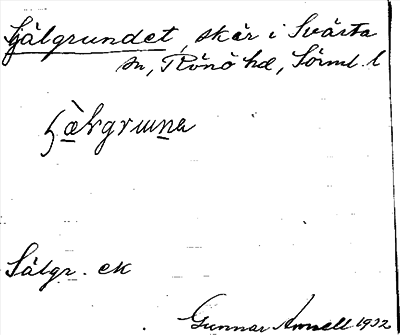 Själgrundet, skär i Svärta
sn, Rönö hd, Sörml. l
Sälgr. ek
Gunnar Amnell 1932